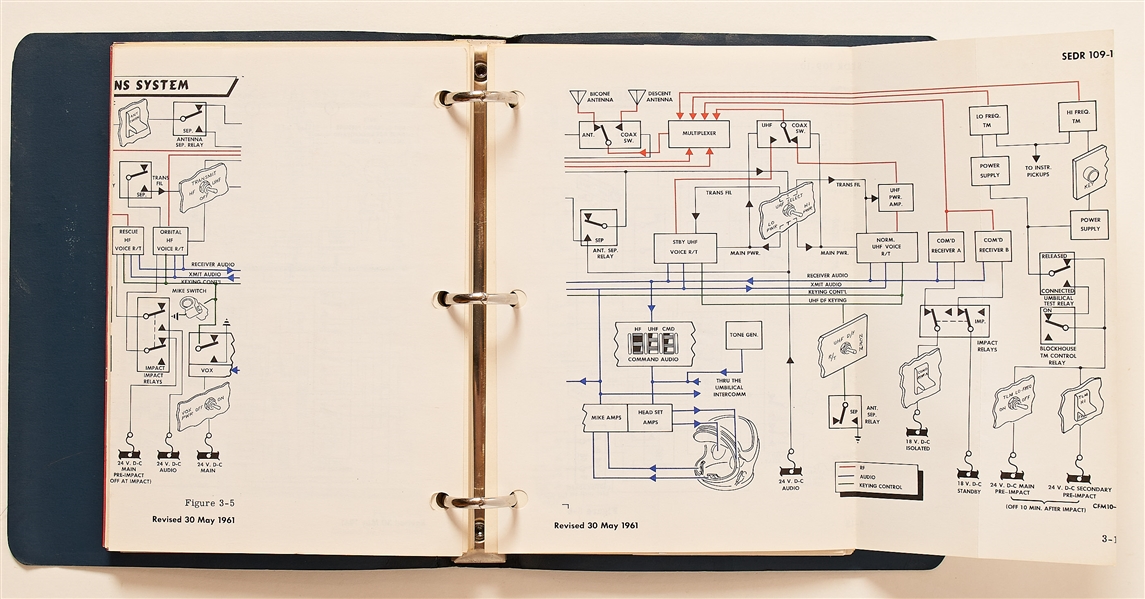 NS SYSTEM
SEP.
ANTENNA
SEP. RELAY
SEP.
TRANS
FIL
TRANSMIT
HF UHF
OFF
RESCUE
HF
VOICE R/T
ORBITAL
HF
VOICE R/T
RECEIVER AUDIO
XMIT AUDIO
KEYING CONT'L
MIKE SWITCH
IMPACT
IMPACT
RELAYS
VOX
VOX OFF ON
PWR
24 V. D-C
MAIN
PRE-IMPACT
OFF AT IMPACT)
24 V. D-C
AUDIO
24 V. D-C
MAIN
Figure 3-5
Revised 30 May 1961
SEDR 109-1
BICONE
ANTENNA
DESCENT
ANTENNA
ANT.
COAX
SW.
MULTIPLEXER
UHF
COAX
SW.
LO FREQ.
TM
HI FREQ.
TM
TO INSTR.
PICKUPS
POWER
SUPPLY
KEY
POWER
SUPPLY
TRANS FIL
TRANS FIL
UHF SELECT
LO
PWR
HI
PWR
UHF
PWR.
AMP.
SEP
ANT. SEP.
RELAY
STBY UHF
VOICE R/T
MAIN PWR.
MAIN PWR.
NORM.
UHF VOICE
R/T
COM'D
RECEIVER A
COM'D
RECEIVER B
RELEASED
CONNECTED
UMBILICAL
TEST RELAY
ON
BLOCKHOUSE
TM CONTROL
RELAY
RECEIVER AUDIO
XMIT AUDIO
KEYING CONT'L
UHF DF KEYING
IMP.
IMPACT
RELAYS
HF UHF CMD
COMMAND AUDIO
TONE GEN.
THRU THE
UMBILICAL
INTERCOMM
MIKE AMPS
HEAD SET
AMPS
UHF D/F
R/T
NORM
SEP
ANT.
SEP.
RELAY
TLM LO FREQ
ON OFF
TLM
HI
24 V. D-C
AUDIO
18 V. D-C
ISOLATED
18 V. D-C
STANDBY
24 V. D-C MAIN
PRE-IMPACT
24 V. D-C SECONDARY
PRE-IMPACT
(OFF 10 MIN. AFTER IMPACT)
CFM10-
RF
AUDIO
KEYING CONTROL
Revised 30 May 1961
3-1